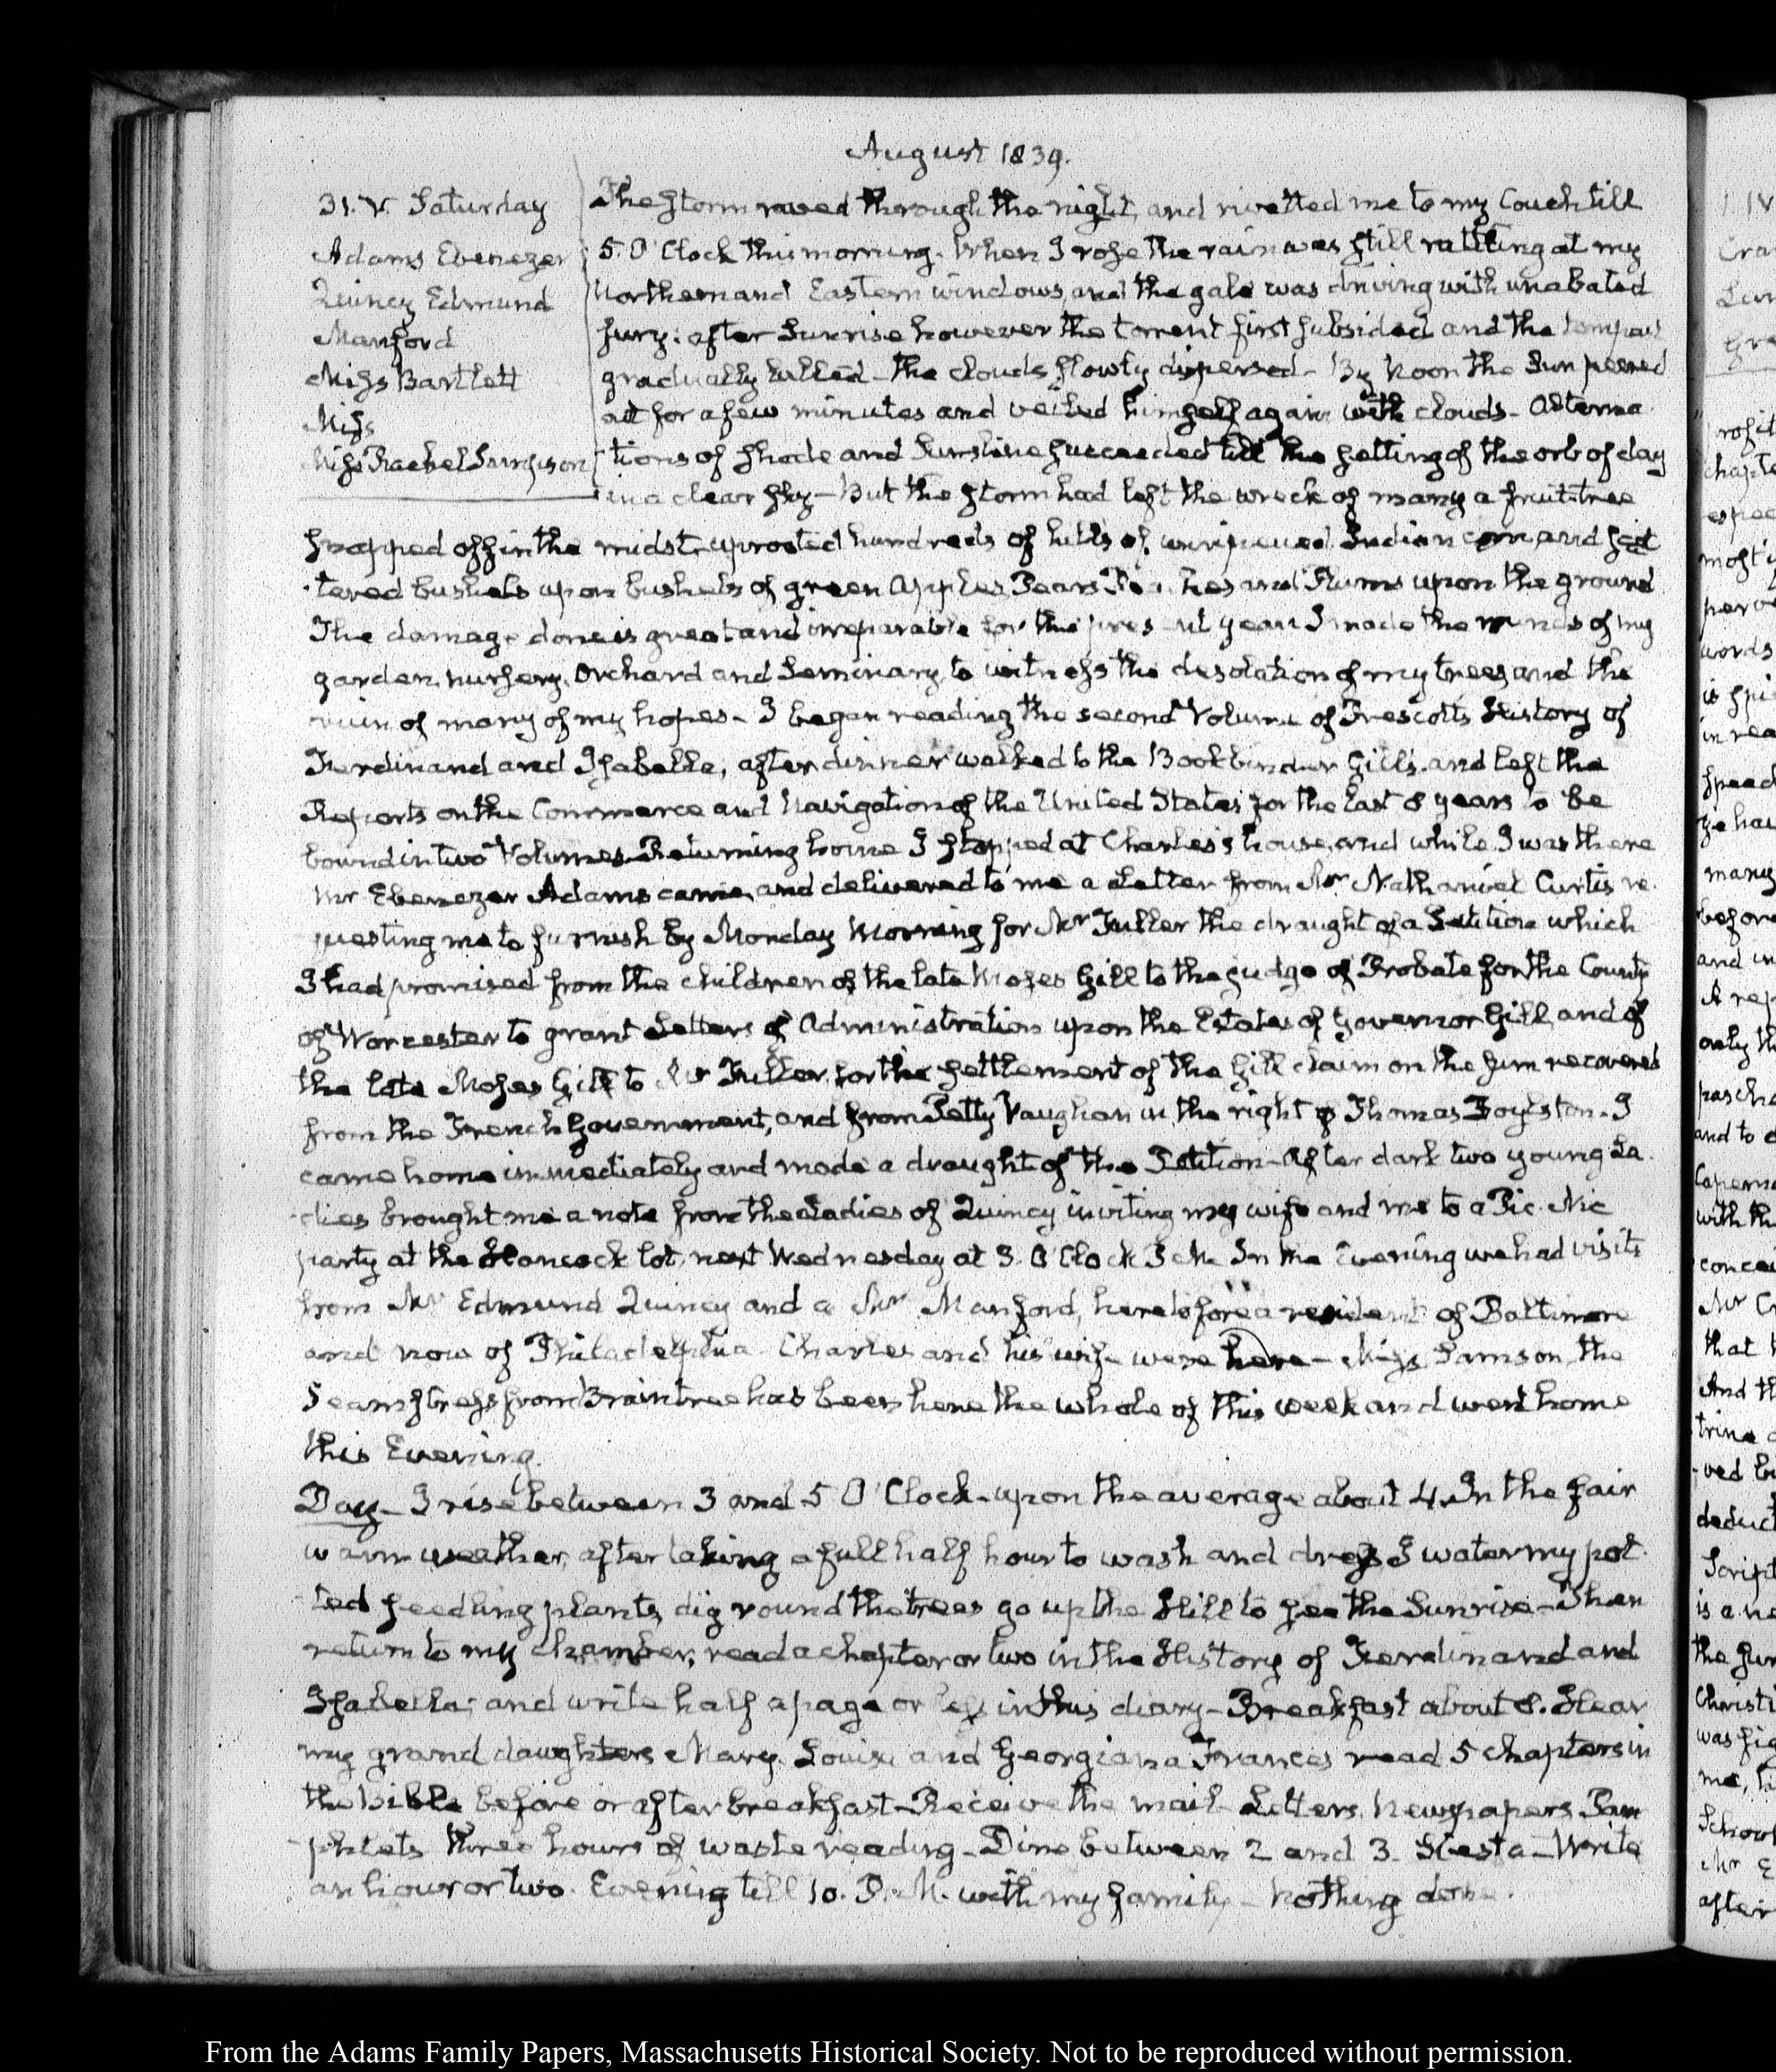 August 1839.
31. V. Saturday
Adams Ebenezer
Quincy Edmund
Manford
Miss Bartlett
Miss
Miss Rachel Sampson
The storm raved through the night, and rivetted me to my Couch till
5. O'Clock this morning. When I rose the rain was still rattling at my
Northern and Eastern windows, and the gale was driving with unabated
fury: after Sunrise however the torrent first subsided and the tempest
gradually lulled - the clouds slowly dispersed - By Noon the Sun peered
out for a few minutes and veiled himself again with clouds - Alterna
tions of shade and Sunshine succeeded till the setting of the orb of day
in a clear sky - But the storm had left the wreck of many a fruit-tree
snapped off in the midst, uprooted hundreds of hills of unripened Indian corn, and scat
tered bushels upon bushels of green Apples Pears Peaches and Plums upon the ground
The damage done is great and irreparable for the present year I made the rounds of my
garden, nursery, Orchard and Seminary, to witness the desolation of my trees, and the
ruin of many of my hopes - I began reading the second Volume of Prescott's History of
Ferdinand and Isabella, after dinner walked to the Bookbinder Gill's, and left the
Reports on the Commerce and Navigation of the United States for the last 8 years to be
bound in two Volumes - Returning home I stopped at Charles's house, and while I was there
Mr Ebenezer Adams came, and delivered to me a Letter from Mr Nathaniel Curtis re
questing me to furnish by Monday Morning for Mr Fuller the draught of a Petition which
I had promised from the children of the late Moses Gill to the judge of Probate for the County
of Worcester to grant Letters of Administration upon the Estates of Governor Gill, and of
the late Moses Gill to Mr Fuller, for the settlement of the Gill claim on the sum recovered
from the French Government, and from Petty Vaughan in the right of Thomas Boylston. I
came home immediately and made a draught of the Petition - After dark two young La
dies brought me a note from the Ladies of Quincy inviting my wife and me to a Pic. Nic
party at the Hancock lot, next Wednesday at 3. O'Clock P. M. In the Evening we had visits
from Mr Edmund Quincy and a Mr Manford, heretofore a resident of Baltimore
and now of Philadelphia - Charles and his wife were here - Miss Samson, the
Seamstress from Braintree has been here the whole of this week and went home
this Evening.
Day - I rise between 3 and 5 O'Clock - upon the average about 4. In the fair
warm weather, after taking a full half hour to wash and dress I water my pot
ted seedling plants, dig round the trees go up the Hill to see the Sunrise - Then
return to my chamber, read a chapter or two in the History of Ferdinand and
Isabella; and write half a page or less in this diary - Breakfast about 8. Hear
my grand daughters Mary Louisa and Georgiana Frances read 5 chapters in
the Bible before or after breakfast - Receive the mail - Letters, Newspapers, Pam
phlets three hours of waste reading - Dine between 2 and 3. Siesta - Write
an hour or two. Evening till 10. P. M. with my family - Nothing done.
From the Adams Family Papers, Massachusetts Historical Society. Not to be reproduced without permission.